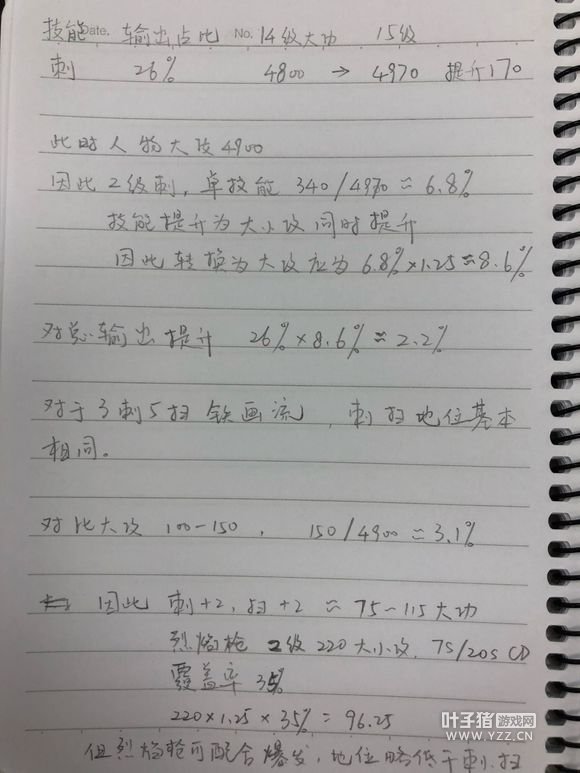 技能 Date. 输出占比 No. 14级大功 15级
刺 26% 4800 → 4970 提升170
此时人物大攻4900
因此2级刺,单技能 340/4970≈6.8%
技能提升为大小攻同时提升
因此转换为大攻应为6.8%×1.25≈8.6%
对总输出提升 26%×8.6%≈2.2%
对于3刺5扫铁画流,刺扫地位基本
相同。
对比大攻 100-150, 150/4900≈3.1%
因此 刺+2,扫+2 ≈ 75~115大功
烈焰枪 2级220大小攻. 7S/20S CD
覆盖率 35%
220×1.25×35%=96.25
但烈焰枪可配合爆发,地位略低于刺.扫
叶子猪游戏网
WWW.YZZ.CN